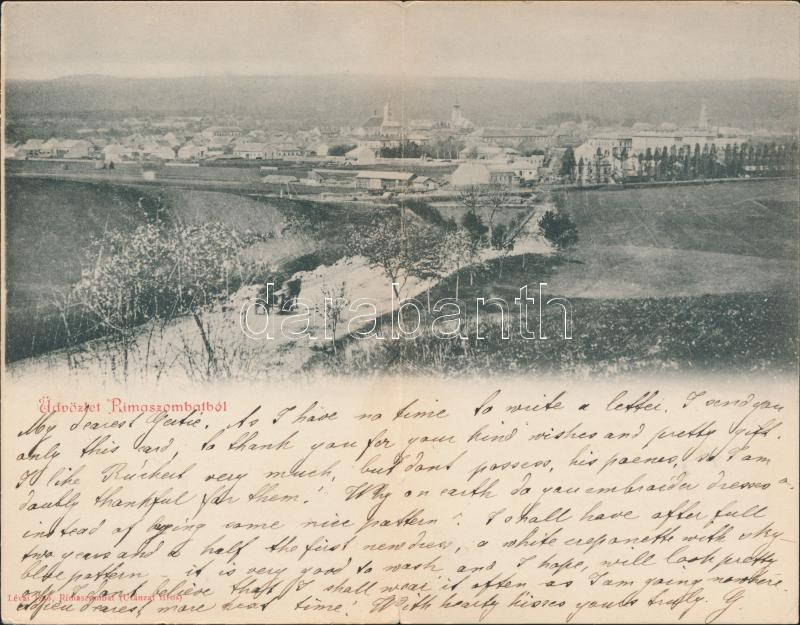 darabanth
Üdvözlet Rimaszombatból
My dearest Gertie, As I have no time to write a letter, I send you
only this card, to thank you for your kind wishes and pretty gift.
I like Rückert very much, but dont possess, his poems, so I am
doubly thankful for them! Why on earth do you embroider dresses
instead of bying some nice pattern? I shall have after full
two years and a half the first new dress, a white crepanette with sky-
blue pattern, it is very good to wash and I hope, will look pretty
only I dont believe that I shall wear it often as I am going nowhere
dearest, more next time! With hearty kisses yours truly. G.
Lévai Izsó, Rimaszombat (Utánzat tilos)